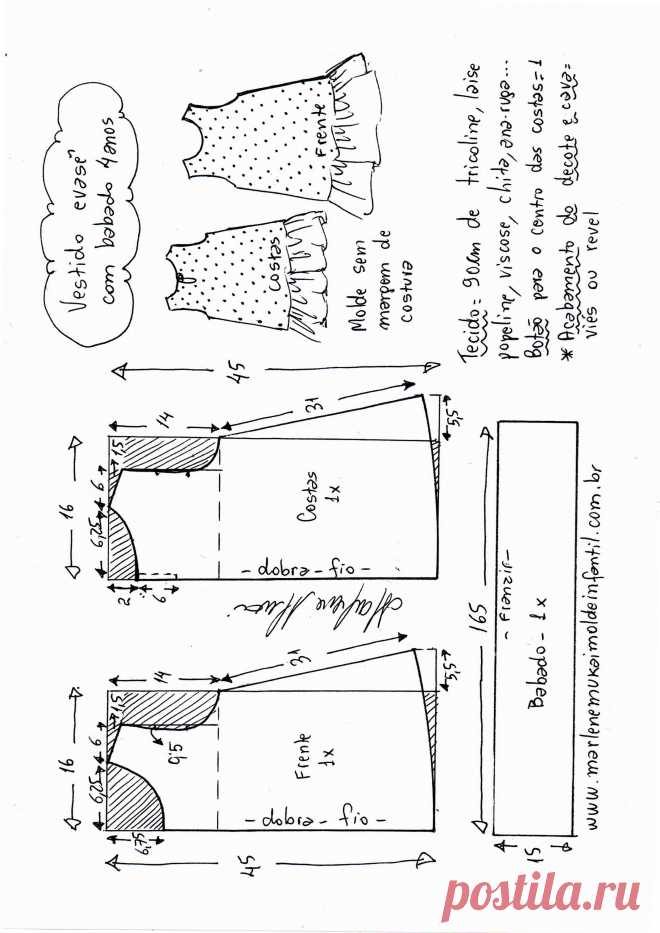 Vestido evasê
com babado 4anos
Frente
Costas
Molde sem
margem de
costura
Tecido = 90cm de tricoline, laise
popeline, viscose, chita, ana-ruga...
Botão para o centro das costas = 1
* Acabamento do decote e cava =
viés ou revel
45
16
14
6,25
6
1,5
31
Costas
1x
- dobra - fio -
2
6
5,5
16
14
6,25
6
1,5
9,5
31
Frente
1x
- dobra - fio -
6,75
45
5,5
165
- Franzir -
Babado - 1x
15
www.marlenemukaimoldeinfantil.com.br
postila.ru